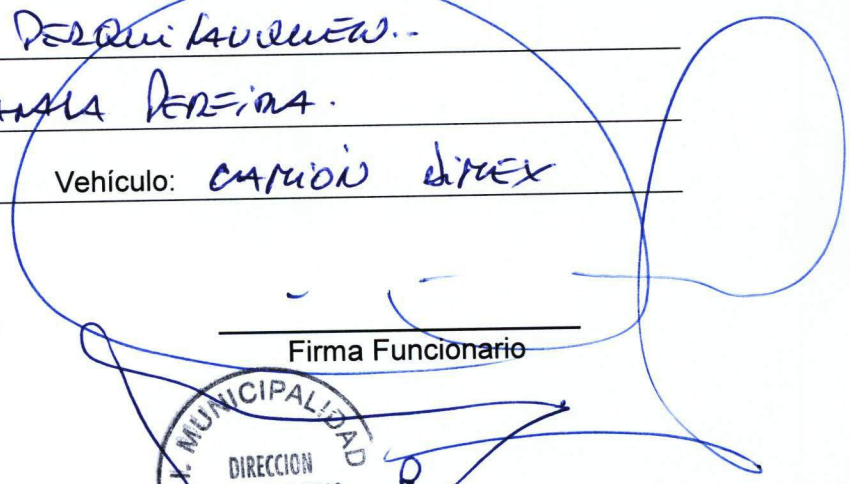 PERQUILAUQUEN.-
PEREIRA.
Vehículo: CAMIÓN DIMEX
Firma Funcionario
I. MUNICIPALIDAD
DIRECCION